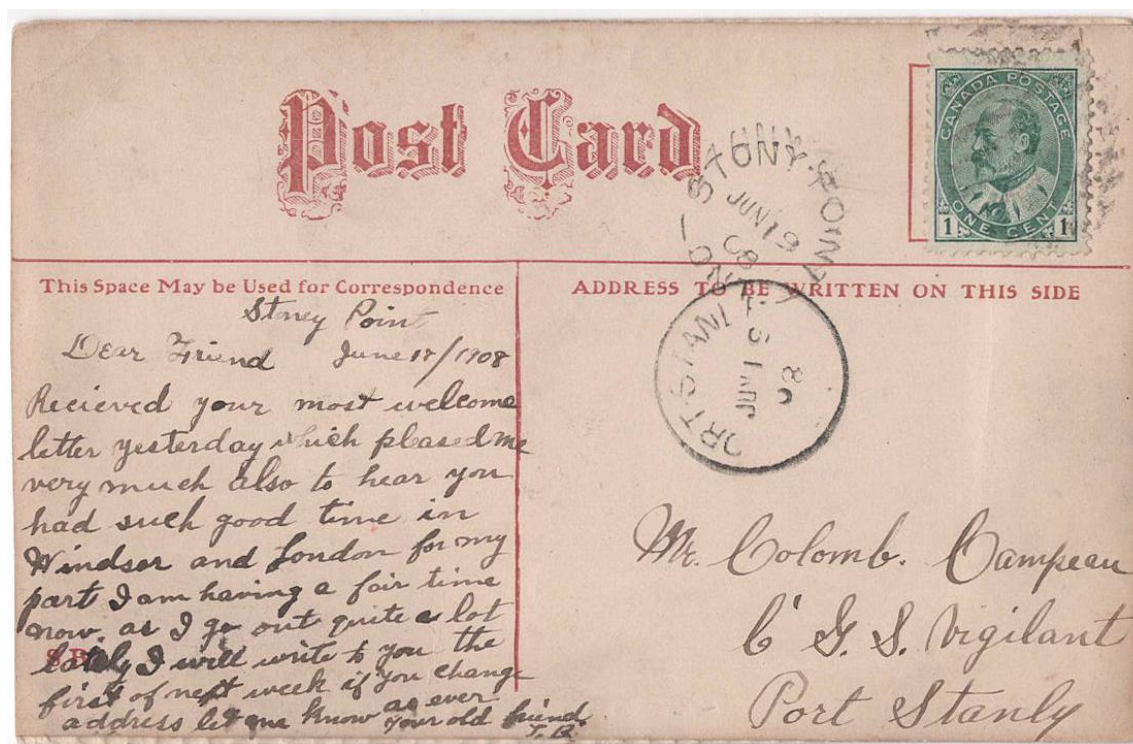 Post Card
CANADA POSTAGE
1 ONE CENT 1
STONY POINT
JUN 19
08
This Space May be Used for Correspondence
ADDRESS TO BE WRITTEN ON THIS SIDE
Stoney Point
Dear Friend June 18/1908
Recieved your most welcome
letter yesterday which pleased me
very much also to hear you
had such good time in
Windsor and London for my
part I am having a fair time
now. as I go out quite a lot
lately I will write to you the
first of next week if you change
address let me know as ever
your old friend
T.R.
ORT STANL
JUN 19
08
Mr. Colomb. Campeau
C G. S. Vigilant
Port Stanly